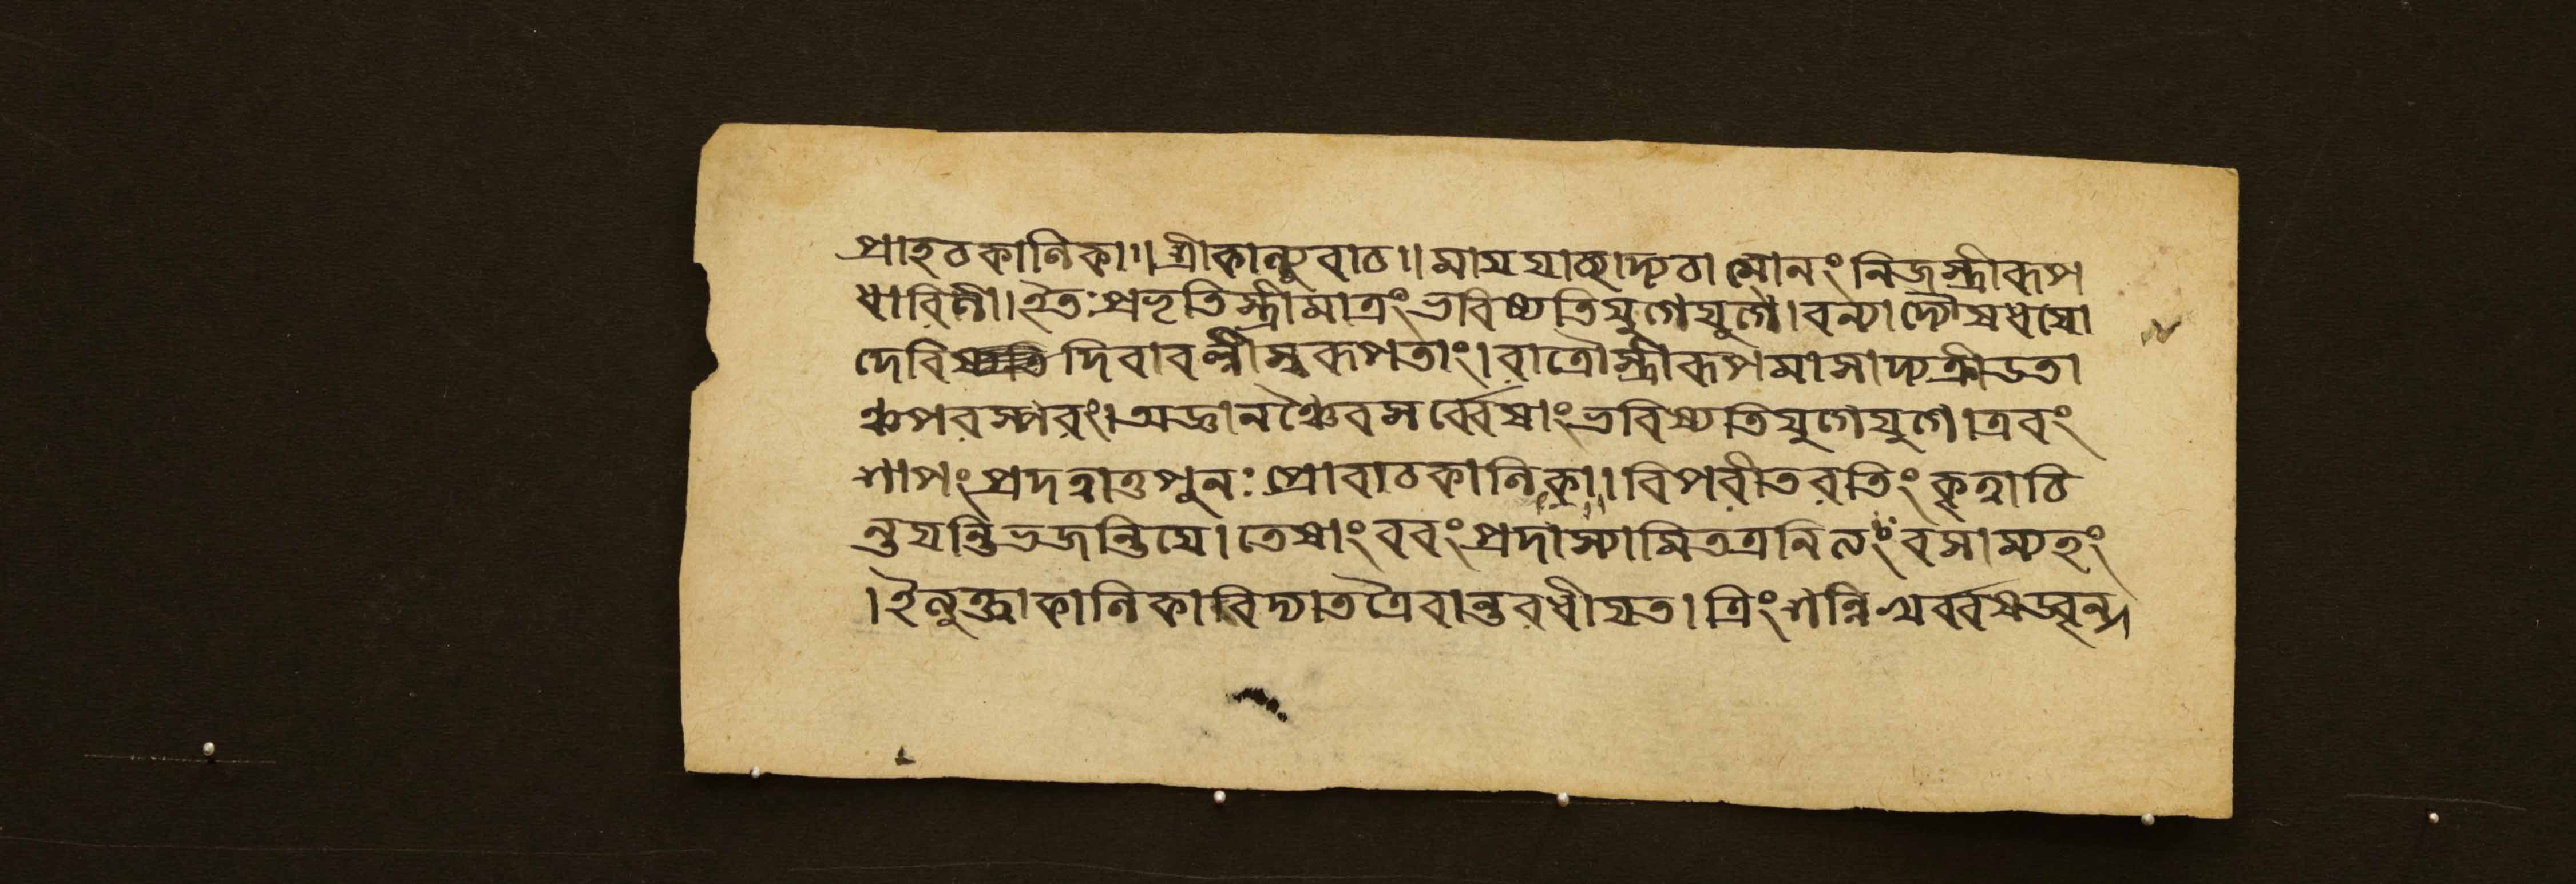 প্রাহ চ কালিকা॥ শ্রীকাল্যুবাচ॥ মায়য়াচ্ছাদ্য চাত্মানং নিজস্ত্রীরূপ
ধারিণী। ইতঃপ্রভৃতি স্ত্রীমাত্রং ভবিষ্যতি যুগে যুগে। বন্যাদ্যৌষধয়ো
দেবি দিবা বল্লীস্বরূপতাং। রাত্রৌ স্ত্রীরূপমাসাদ্য ক্রীডতা
ঞ্চ পরস্পরং। অজ্ঞানঞ্চৈব সর্ব্বেষাং ভবিষ্যতি যুগে যুগে। এবং
শাপং প্রদত্বা তু পুনঃ প্রোবাচ কালিকা। বিপরীতরতিং কৃত্বা চি
ন্তয়ন্তি ভজন্তি যে। তেষাং বরং প্রদাস্যামি তত্র নিত্যং বসাম্যহং
। ইত্যুক্ত্বা কালিকা বিদ্যা তত্রৈবান্তরধীয়ত। ত্রিংশন্নিখর্ব্বষড্বৃন্দ